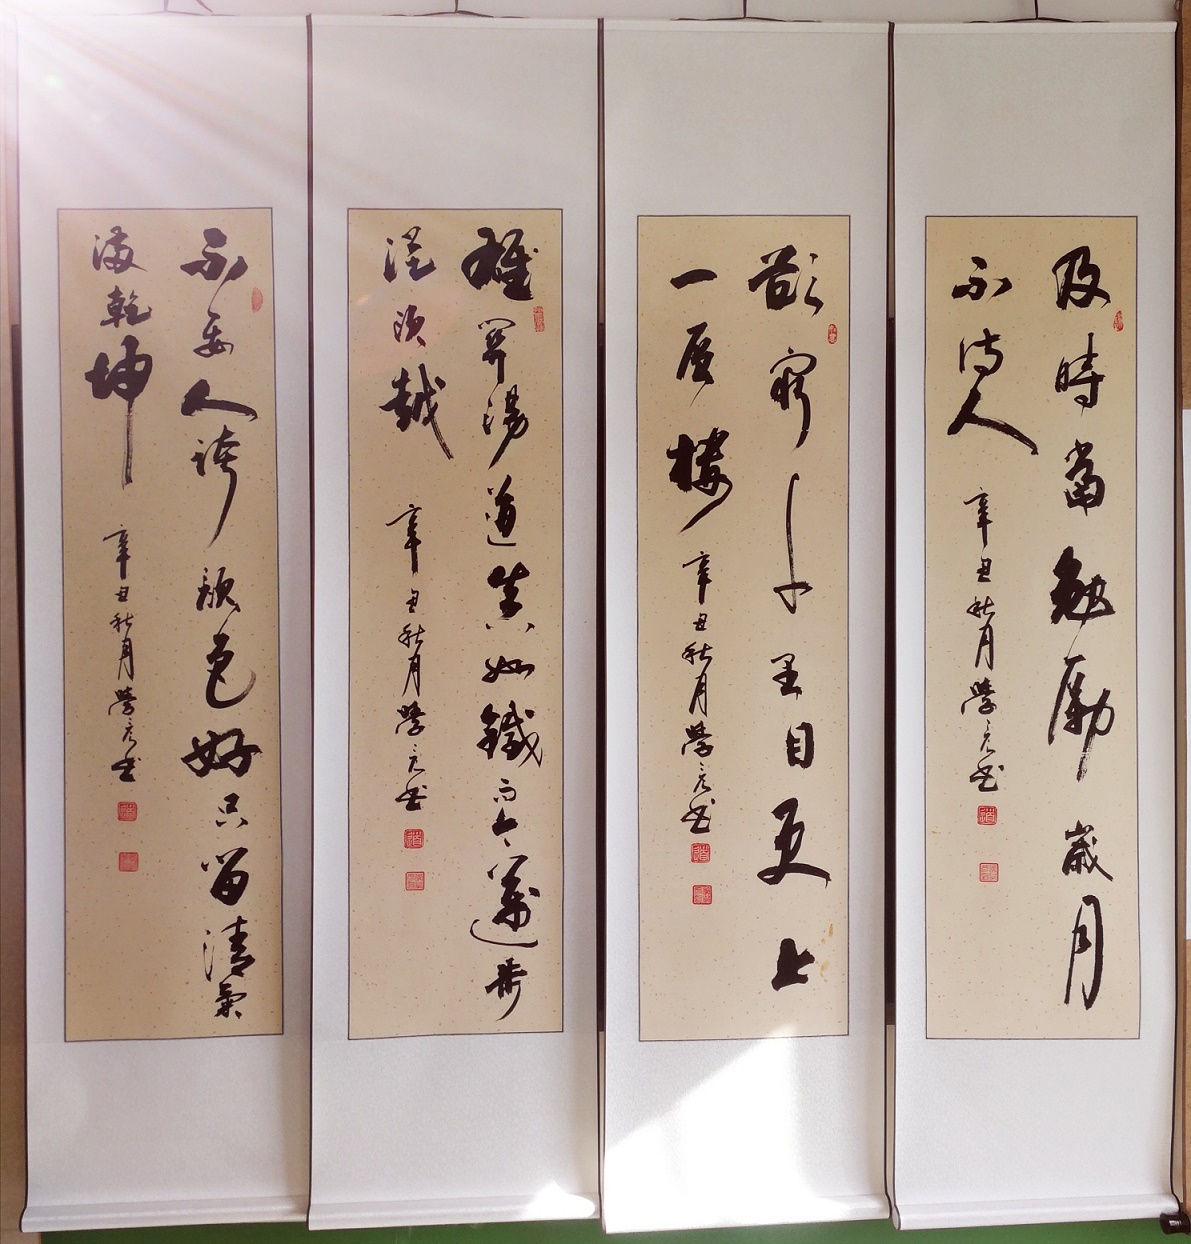 及時當勉勵歲月
不待人
辛丑秋月學書
欲窮千里目更上
一層樓
辛丑秋月學書
雄關漫道真如鐵而今邁步
從頭越
辛丑秋月學書
不要人誇顏色好只留清氣
滿乾坤
辛丑秋月學書